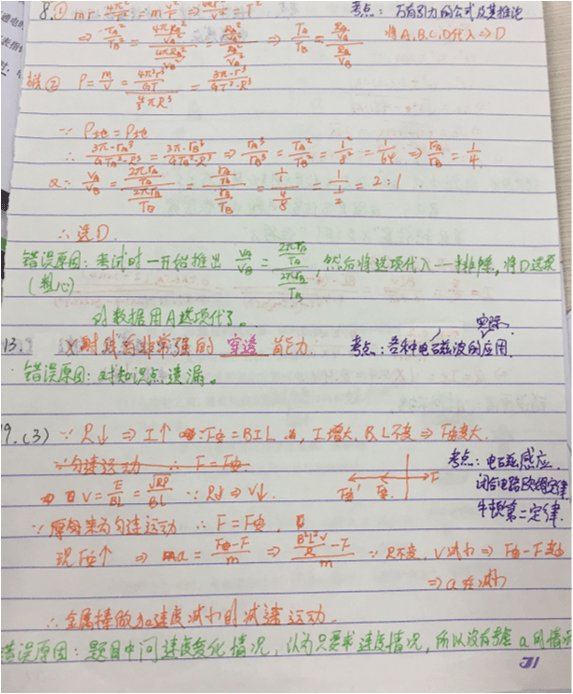 8. ① mr·4π²/T² = m v²/r ⇒ 4π²r²/v² = T²
考点：万有引力的公式及其推论
⇒ T_A²/T_B² = (4π²r_A²/v_A²)/(4πr_B²/v_B²) = (r_A²/v_A²)/(r_B²/v_B²) ⇒ T_A/T_B = (r_A/v_A)/(r_B/v_B)
将A,B,C,D代入⇒D
② ρ = m/V = (4π²r³/GT²)/(4/3 πR³) = 3π·r³/GT²·R³
∵ ρ地 = ρ地
∴ 3π·r_A³/GT_A²·R³ = 3π·r_B³/GT_B²·R³ ⇒ r_A³/r_B³ = T_A²/T_B² = 1²/8² = 1/64 ⇒ r_A/r_B = 1/4.
∵ v_A/v_B = (2πr_A/T_A)/(2πr_B/T_B) = (r_A/T_A)/(r_B/T_B) = (1/1)/(4/8) = 1/(1/2) = 2:1.
∴ 选D.
错误原因：考试时一开始推出 v_A/v_B = (2πr_A/T_A)/(2πr_B/T_B), 然后将选项代入一一排除，将D选项
(粗心).
的数据用A选项代了。
实际
13. X射线有非常强的 穿透 能力.
考点：各种电磁波的应用.
错误原因：对知识点遗漏。
19.(3) ∵ R↓ ⇒ I↑ F安=BIL, I增大, B、L不变 ⇒ F安变大.
∵匀速运动 ∴ F=F安
考点：电磁感应.
F安' F安 F
闭合电路欧姆定律
v = E/BL = √RP/BL ∵ R↓ ⇒ v↓.
牛顿第二定律.
∵ 原来为匀速运动 ∴ F=F安,
现F安↑ ⇒ a = (F安-F)/m ⇒ (B²L²v/R - F)/m ∵ R不变, v减小 ⇒ F安-F
⇒ a在减小
∴ 金属棒做加速度减小的减速运动.
错误原因：题目中问速度变化情况，认为只要求速度情况，所以没有考虑a的情况
31